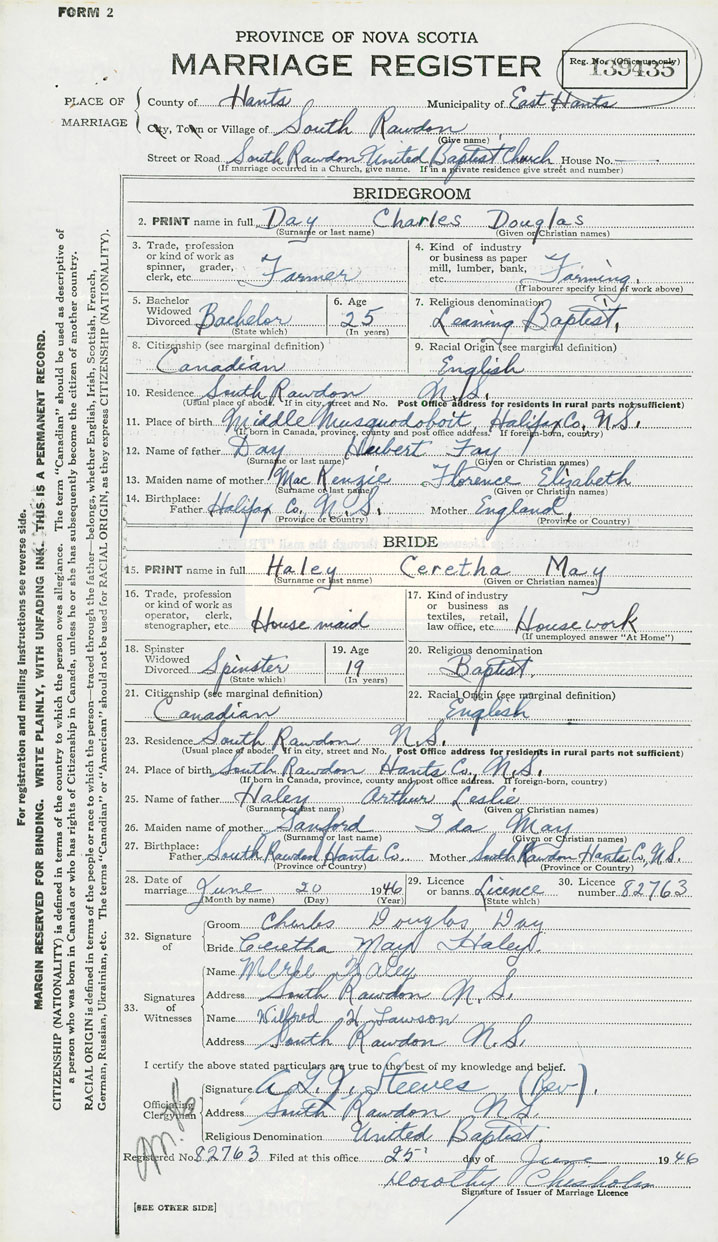 FORM 2
PROVINCE OF NOVA SCOTIA
MARRIAGE REGISTER
Reg. No. (Office use only)
139435
PLACE OF MARRIAGE
County of Hants Municipality of East Hants
City, Town or Village of South Rawdon
(Give name)
Street or Road South Rawdon United Baptist Church House No. —
(If marriage occurred in a Church, give name. If in a private residence give street and number)
BRIDEGROOM
2. PRINT name in full Day Charles Douglas
(Surname or last name) (Given or Christian names)
3. Trade, profession or kind of work as spinner, grader, clerk, etc. Farmer
4. Kind of industry or business as paper mill, lumber, bank, etc. Farming.
(If labourer specify kind of work above)
5. Bachelor Widowed Divorced Bachelor
(State which)
6. Age 25
(In years)
7. Religious denomination
Leaning Baptist.
8. Citizenship (see marginal definition)
Canadian
9. Racial Origin (see marginal definition)
English
10. Residence South Rawdon N.S.
(Usual place of abode. If in city, street and No. Post Office address for residents in rural parts not sufficient)
11. Place of birth Middle Musquodoboit, Halifax Co., N.S.
(If born in Canada, province, county and post office address. If foreign-born, country)
12. Name of father Day Herbert Fay
(Surname or last name) (Given or Christian names)
13. Maiden name of mother MacKenzie Florence Elizabeth
(Surname or last name) (Given or Christian names)
14. Birthplace: Father Halifax Co., N.S. Mother England.
(Province or Country) (Province or Country)
BRIDE
15. PRINT name in full Haley Ceretha May
(Surname or last name) (Given or Christian names)
16. Trade, profession or kind of work as operator, clerk, stenographer, etc. House maid
17. Kind of industry or business as textiles, retail, law office, etc. House work
(If unemployed answer "At Home")
18. Spinster Widowed Divorced Spinster
(State which)
19. Age 19
(In years)
20. Religious denomination
Baptist.
21. Citizenship (see marginal definition)
Canadian
22. Racial Origin (see marginal definition)
English
23. Residence South Rawdon N.S.
(Usual place of abode. If in city, street and No. Post Office address for residents in rural parts not sufficient)
24. Place of birth South Rawdon Hants Co., N.S.
(If born in Canada, province, county and post office address. If foreign-born, country)
25. Name of father Haley Arthur Leslie
(Surname or last name) (Given or Christian names)
26. Maiden name of mother Sanford Ida May
(Surname or last name) (Given or Christian names)
27. Birthplace: Father South Rawdon Hants Co. Mother South Rawdon Hants Co., N.S.
(Province or Country) (Province or Country)
28. Date of marriage June 20 1946
(Month by name) (Day) (Year)
29. Licence or banns Licence
(State which)
30. Licence number 82763
32. Signature of
Groom Charles Douglas Day
Bride Ceretha May Haley.
33. Signatures of Witnesses
Name Merle Haley
Address South Rawdon N.S.
Name Wilfred H Lawson
Address South Rawdon N.S.
I certify the above stated particulars are true to the best of my knowledge and belief.
Officiating Clergyman
Signature Steeves (Rev).
Address South Rawdon N.S.
Religious Denomination United Baptist.
Registered No. 82763 Filed at this office 25 day of June 1946
Dorothy Chisholm
Signature of Issuer of Marriage Licence
[SEE OTHER SIDE]
For registration and mailing instructions see reverse side.
MARGIN RESERVED FOR BINDING. WRITE PLAINLY, WITH UNFADING INK. THIS IS A PERMANENT RECORD.
CITIZENSHIP (NATIONALITY) is defined in terms of the country to which the person owes allegiance. The term "Canadian" should be used as descriptive of
a person who was born in Canada or who has rights of Citizenship in Canada, unless he or she has subsequently become the citizen of another country.
RACIAL ORIGIN is defined in terms of the people or race to which the person—traced through the father—belongs, whether English, Irish, Scottish, French,
German, Russian, Ukrainian, etc. The terms "Canadian" or "American" should not be used for RACIAL ORIGIN, as they express CITIZENSHIP (NATIONALITY).